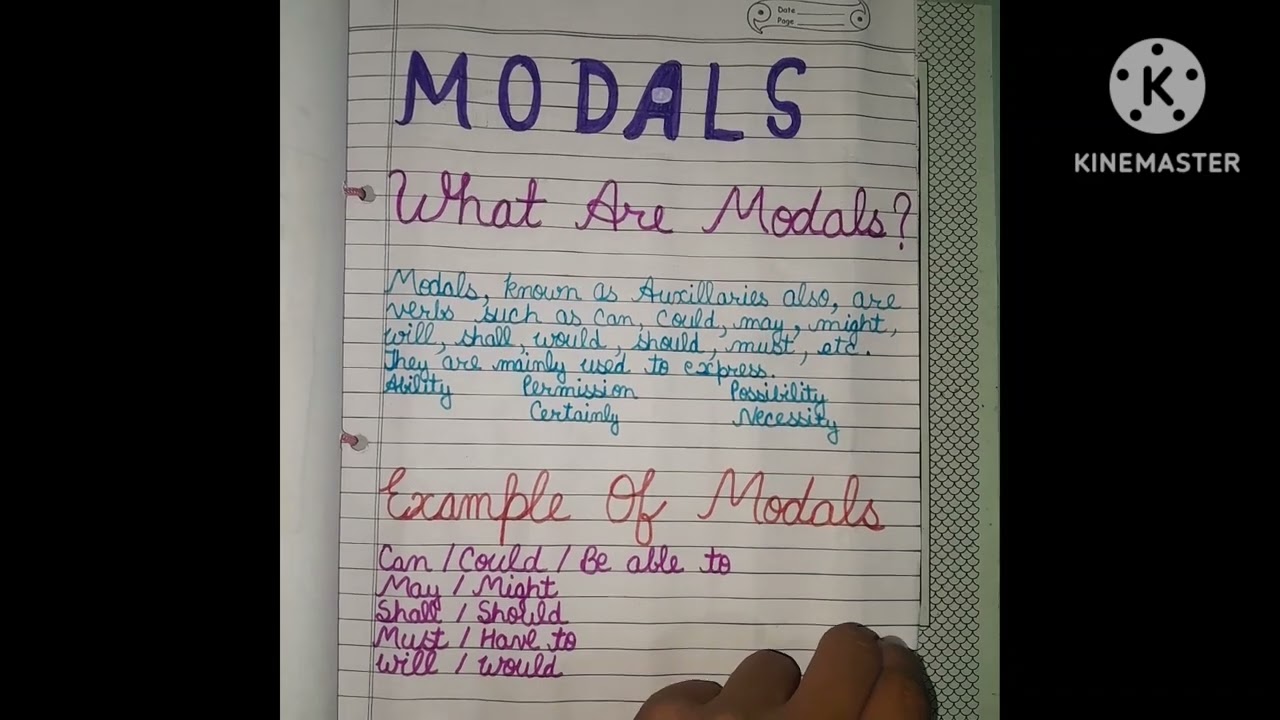 Date
Page
MODALS
What Are Modals?
Modals, known as Auxillaries also, are
verbs such as can, could, may, might,
will, shall, would, should, must, etc.
They are mainly used to express.
Ability Permission Possibility
Certainly Necessity
Example Of Modals
Can / Could / Be able to
May / Might
Shall / Should
Must / Have to
Will / Would
K
KINEMASTER